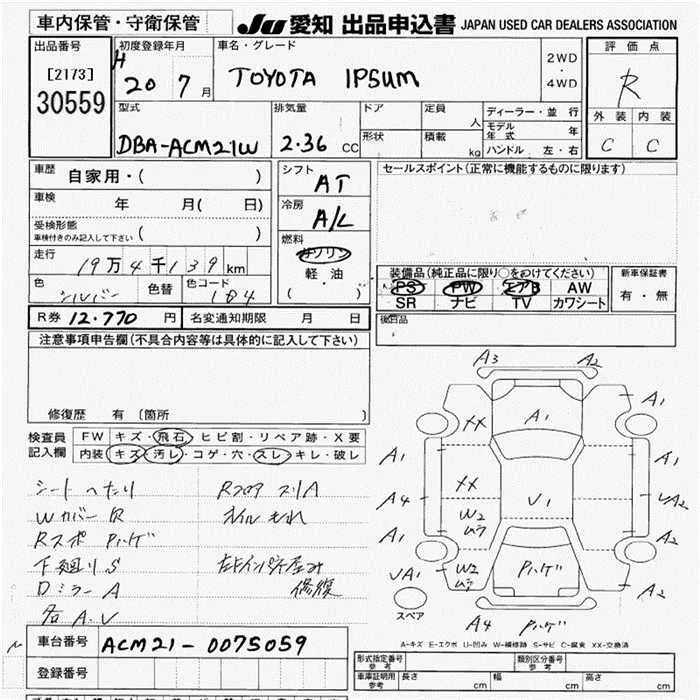 車内保管・守衛保管
JU 愛知 出品申込書 JAPAN USED CAR DEALERS ASSOCIATION
出品番号
[2173]
30559
初度登録年月
H 20 7 月
車名・グレード
TOYOTA IPSUM
2WD
・
4WD
評価点
R
外装 内装
C C
型式
DBA-ACM21W
排気量
2.36 cc
ドア
形状
定員 人
積載 kg
ディーラー・並行
モデル年式 年
ハンドル 左・右
車歴 自家用・( )
車検 年 月( 日)
受検形態
車検付きのみ記入して下さい ( )
走行
19万4千139km
色 シルバー 色替 色コード 1B4
シフト
AT
冷房
A/L
燃料
ガソリン
軽・油
( )
セールスポイント(正常に機能するものに限ります)
装備品(純正品に限り○をつけてください)
PS PW エアB AW
SR ナビ TV カワシート
新車保証書
有・無
後日品
R券 12.770 円 名変通知期限 月 日
注意事項申告欄(不具合内容等は具体的に記入して下さい)
修復歴 有〔箇所
検査員記入欄
FW キズ・飛石・ヒビ割・リペア跡・X要
内装 キズ・汚レ・コゲ・穴・スレ・キレ・破レ
シートへたり
Wカバー R
Rスポ Pハゲ
下廻りS
Dミラー A
各A.V
Rフロア スリA
オイルもれ
修復
A3 A2
A1
XX A1
A1 A1
XX
A4 W2 ムラ V1 UA2
A1 A2
UA1 W2 ムラ Pハゲ A2
スペア
A4 Pハゲ
A-キズ E-エクボ U-凹み W-補修跡 S-サビ C-腐食 XX-交換済
車台番号 ACM21-0075059
登録番号
形式指定番号 参考 類別区分番号 参考
車庫証明用 参考 長さ cm 幅 cm 高さ cm